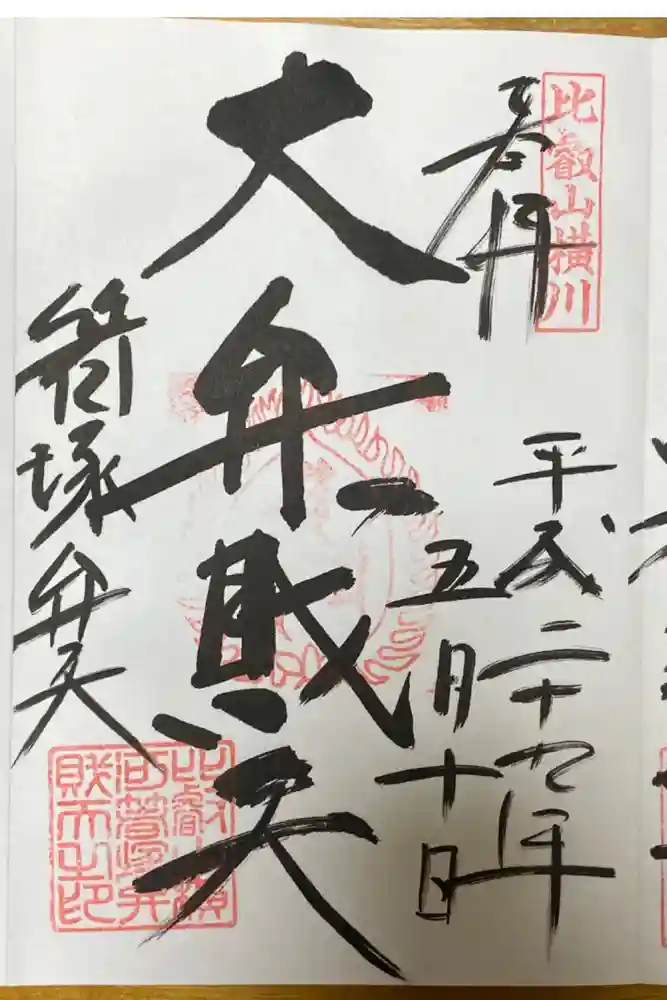 比叡山横川
奉拝
平成二十九年
五月十日
大弁財天
箸塚弁天
比叡山横
河箸塚弁
財天之印